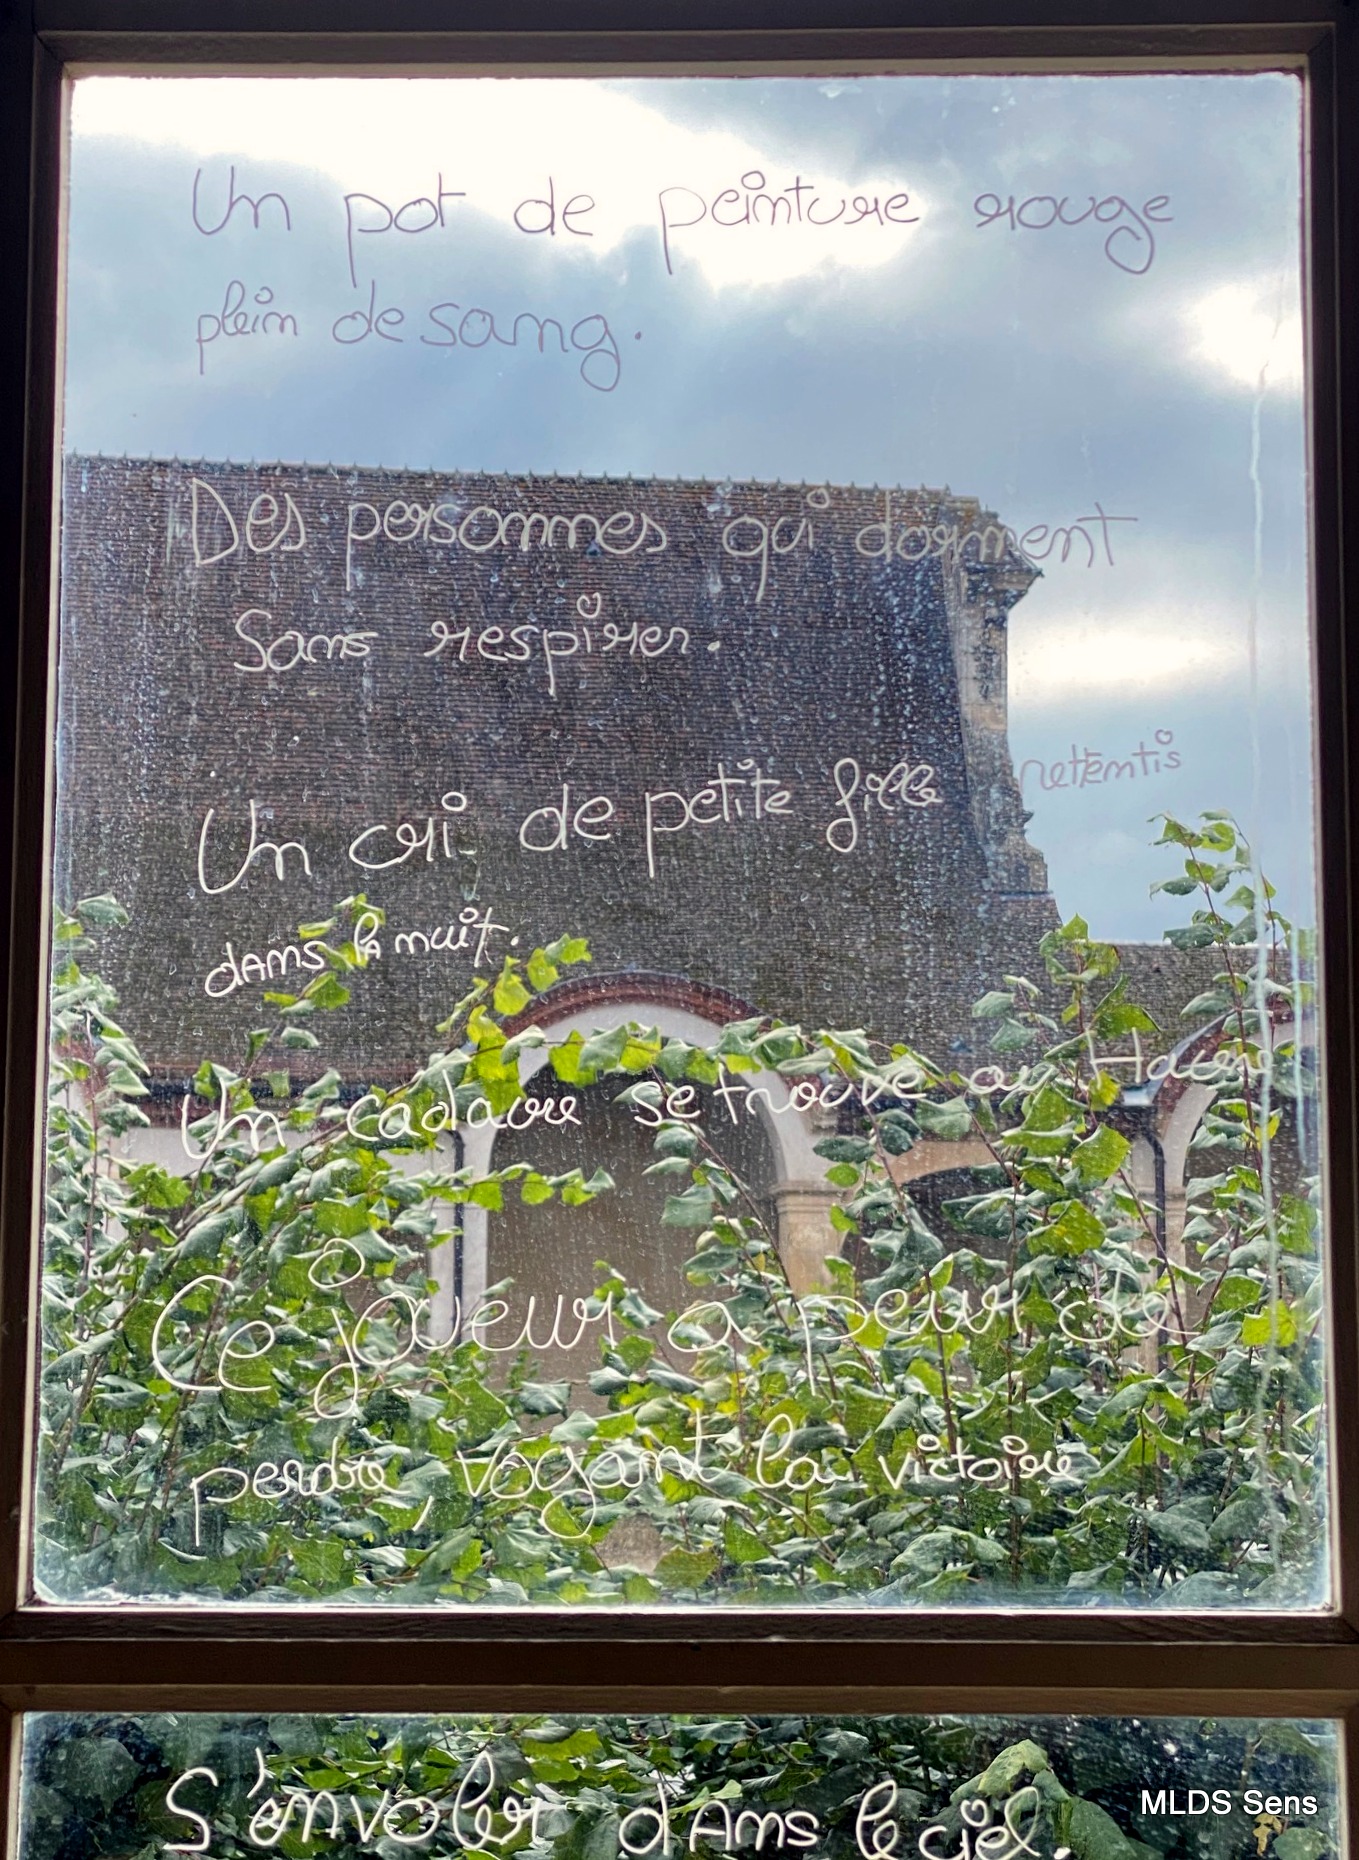 Un pot de peinture rouge
plein de sang.
Des personnes qui dorment
Sans respirer.
Un cri de petite fille retentis
dans la nuit.
Un cadavre se trouve au Havre
Ce joueur a peur de
perdre, voyant la victoire
S'envoler dans le ciel.
MLDS Sens